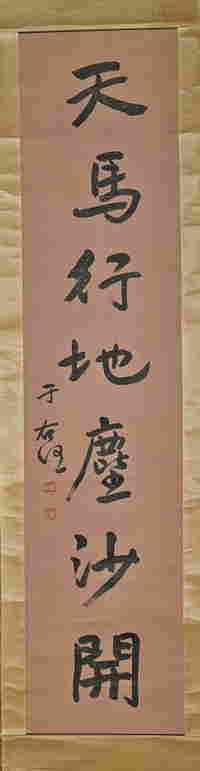 天馬行地塵沙開
于右任